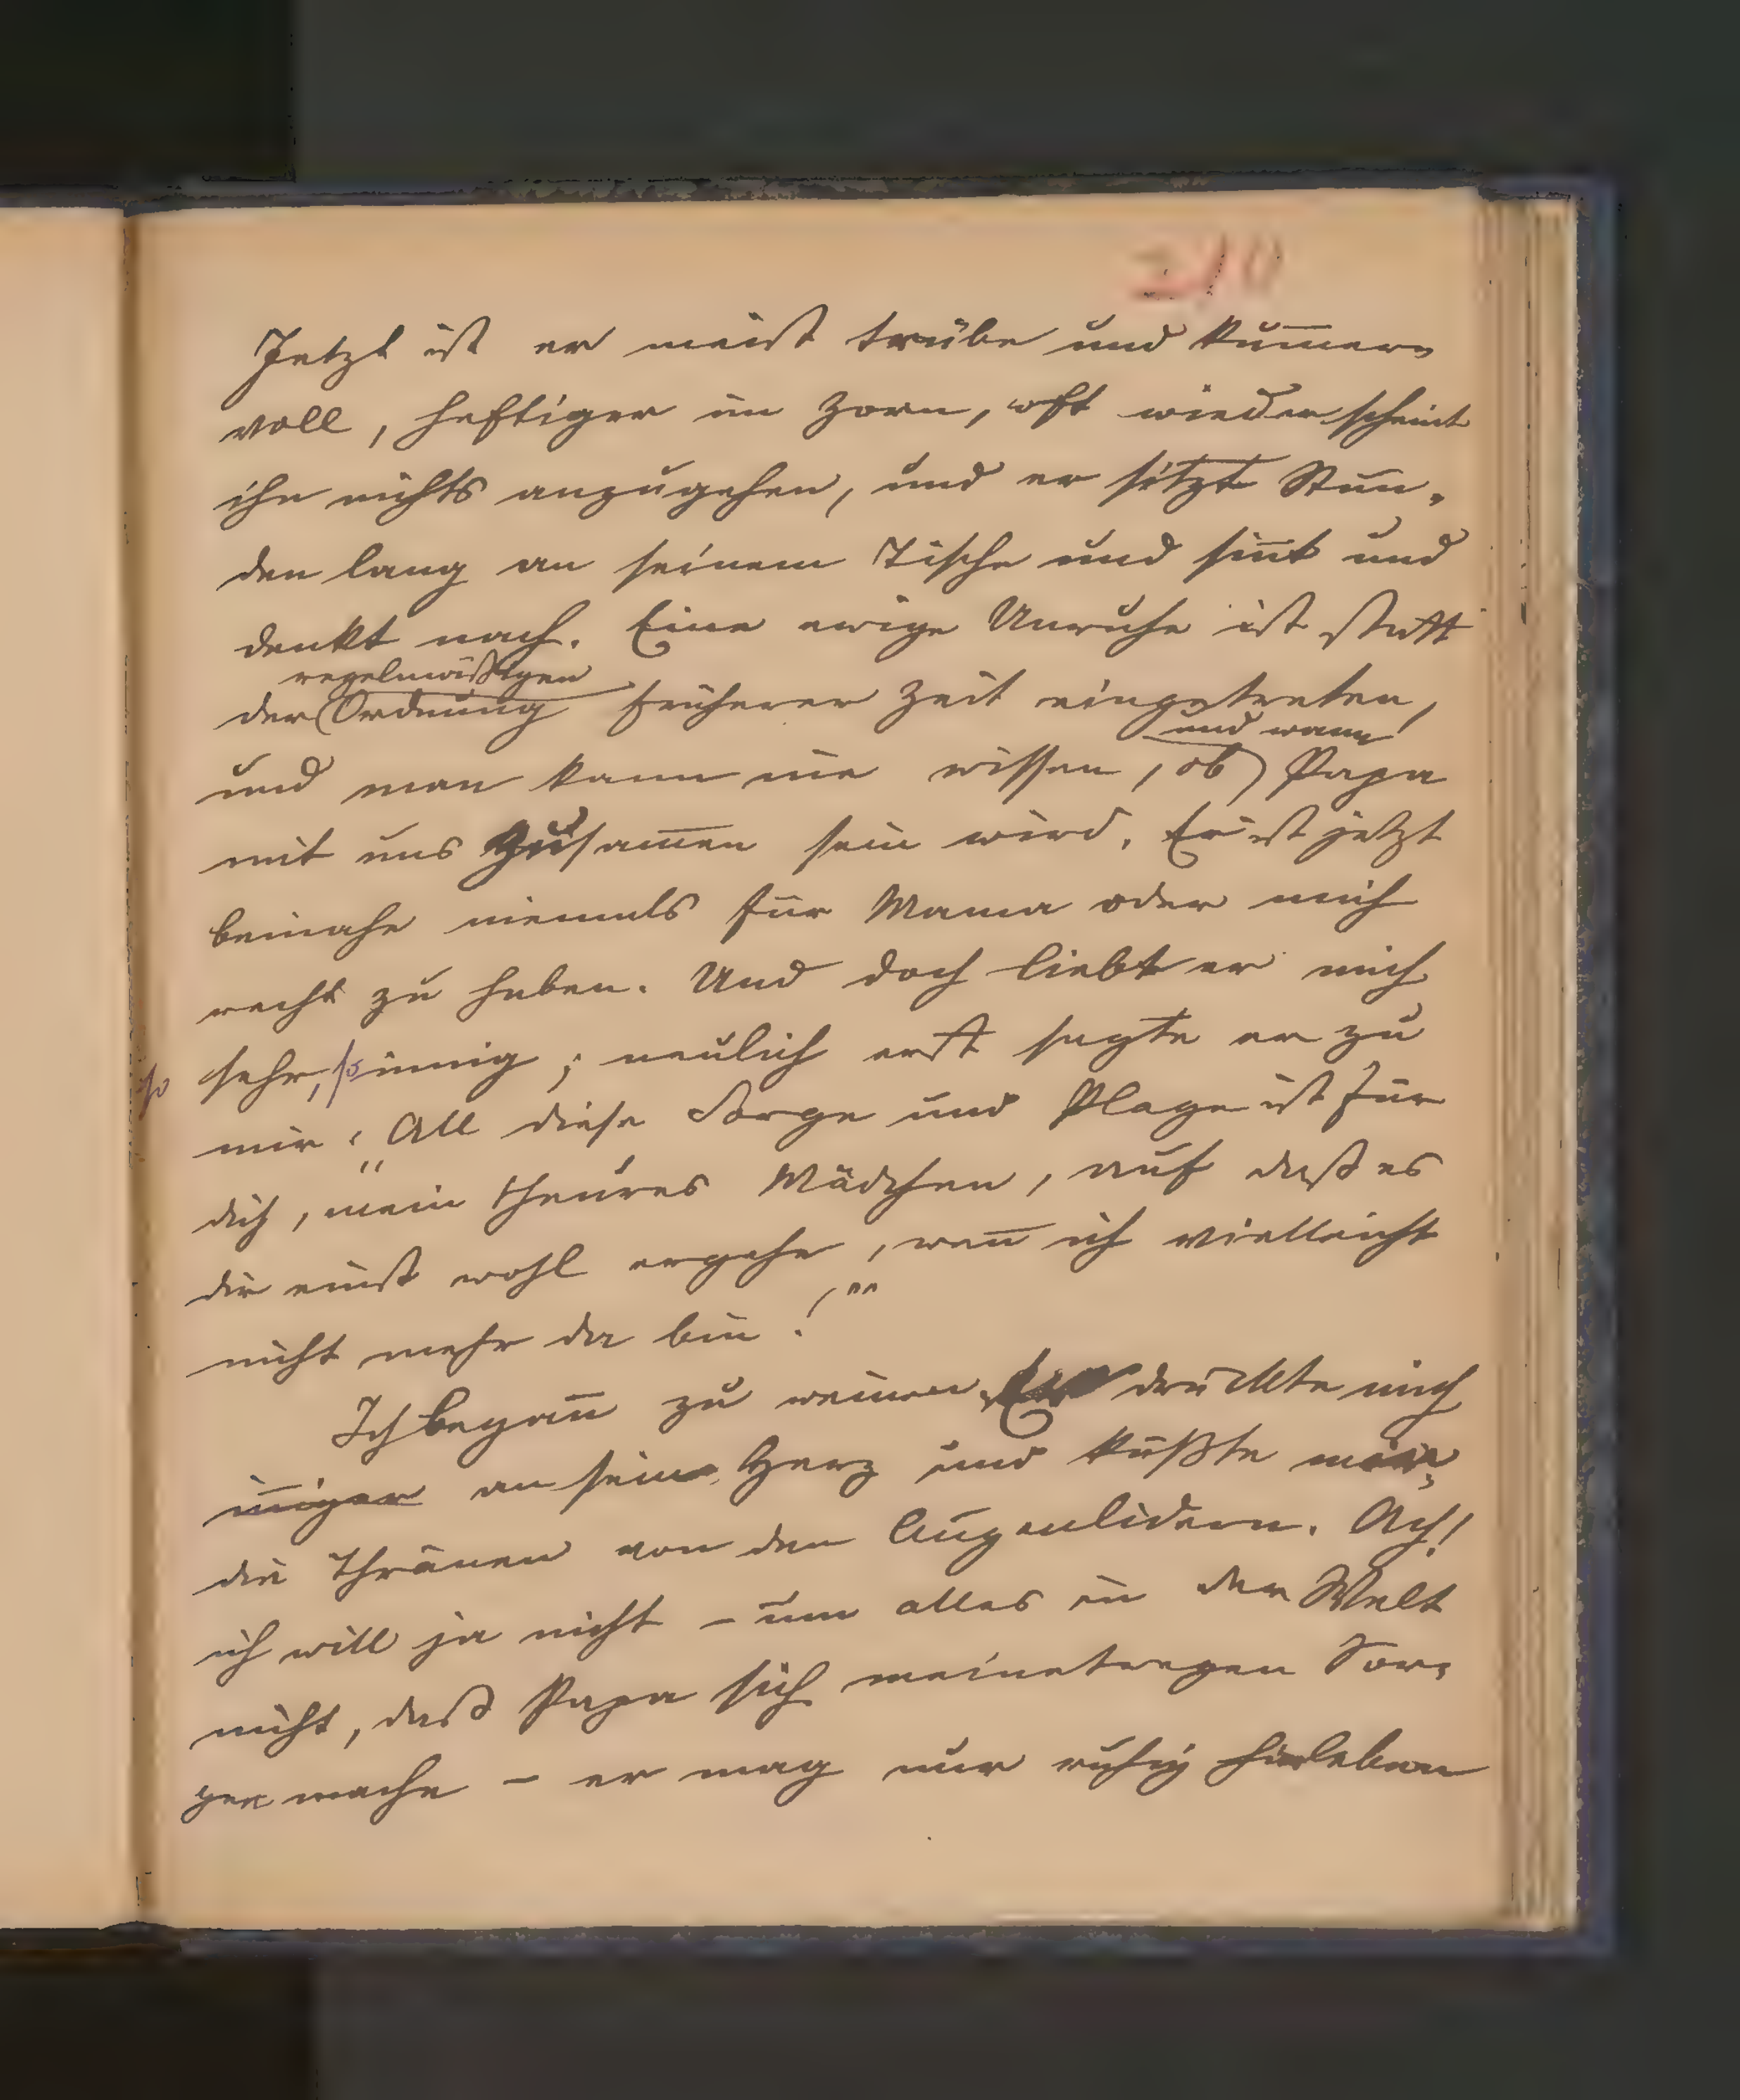 210
Jetzt ist er meist trübe und kum̅er-
voll, heftiger im Zorn, oft wieder scheint
ihn nichts anzugehen, und er sitzt Stun-
den lang an seinem Tische und sin̅t und
denkt nach. Eine ewige Unruhe ist statt
regelmäßigen
der Ordnung früherer Zeit eingetreten,
und wann
und man kann nie wissen, ob Papa
mit uns zusam̅en sein wird. Er ist jetzt
beinahe niemals für Mama oder mich
recht zu haben. Und doch liebt er mich
so sehr, so innig; neulich erst sagte er zu
mir: „All diese Sorge und Plage ist für
dich, mein theures Mädchen, auf daß es
dir einst wohl ergehe, wen̅ ich vielleicht
nicht mehr da bin!“
Ich began̅ zu weinen. Er drückte mich
in̅iger an sein Herz und küßte mir
die Thränen von den Augenlidern. Ach!
ich will ja nicht – um alles in der Welt
nicht, daß Papa sich meinetwegen Sor-
gen mache – er mag nur ruhig hinleben